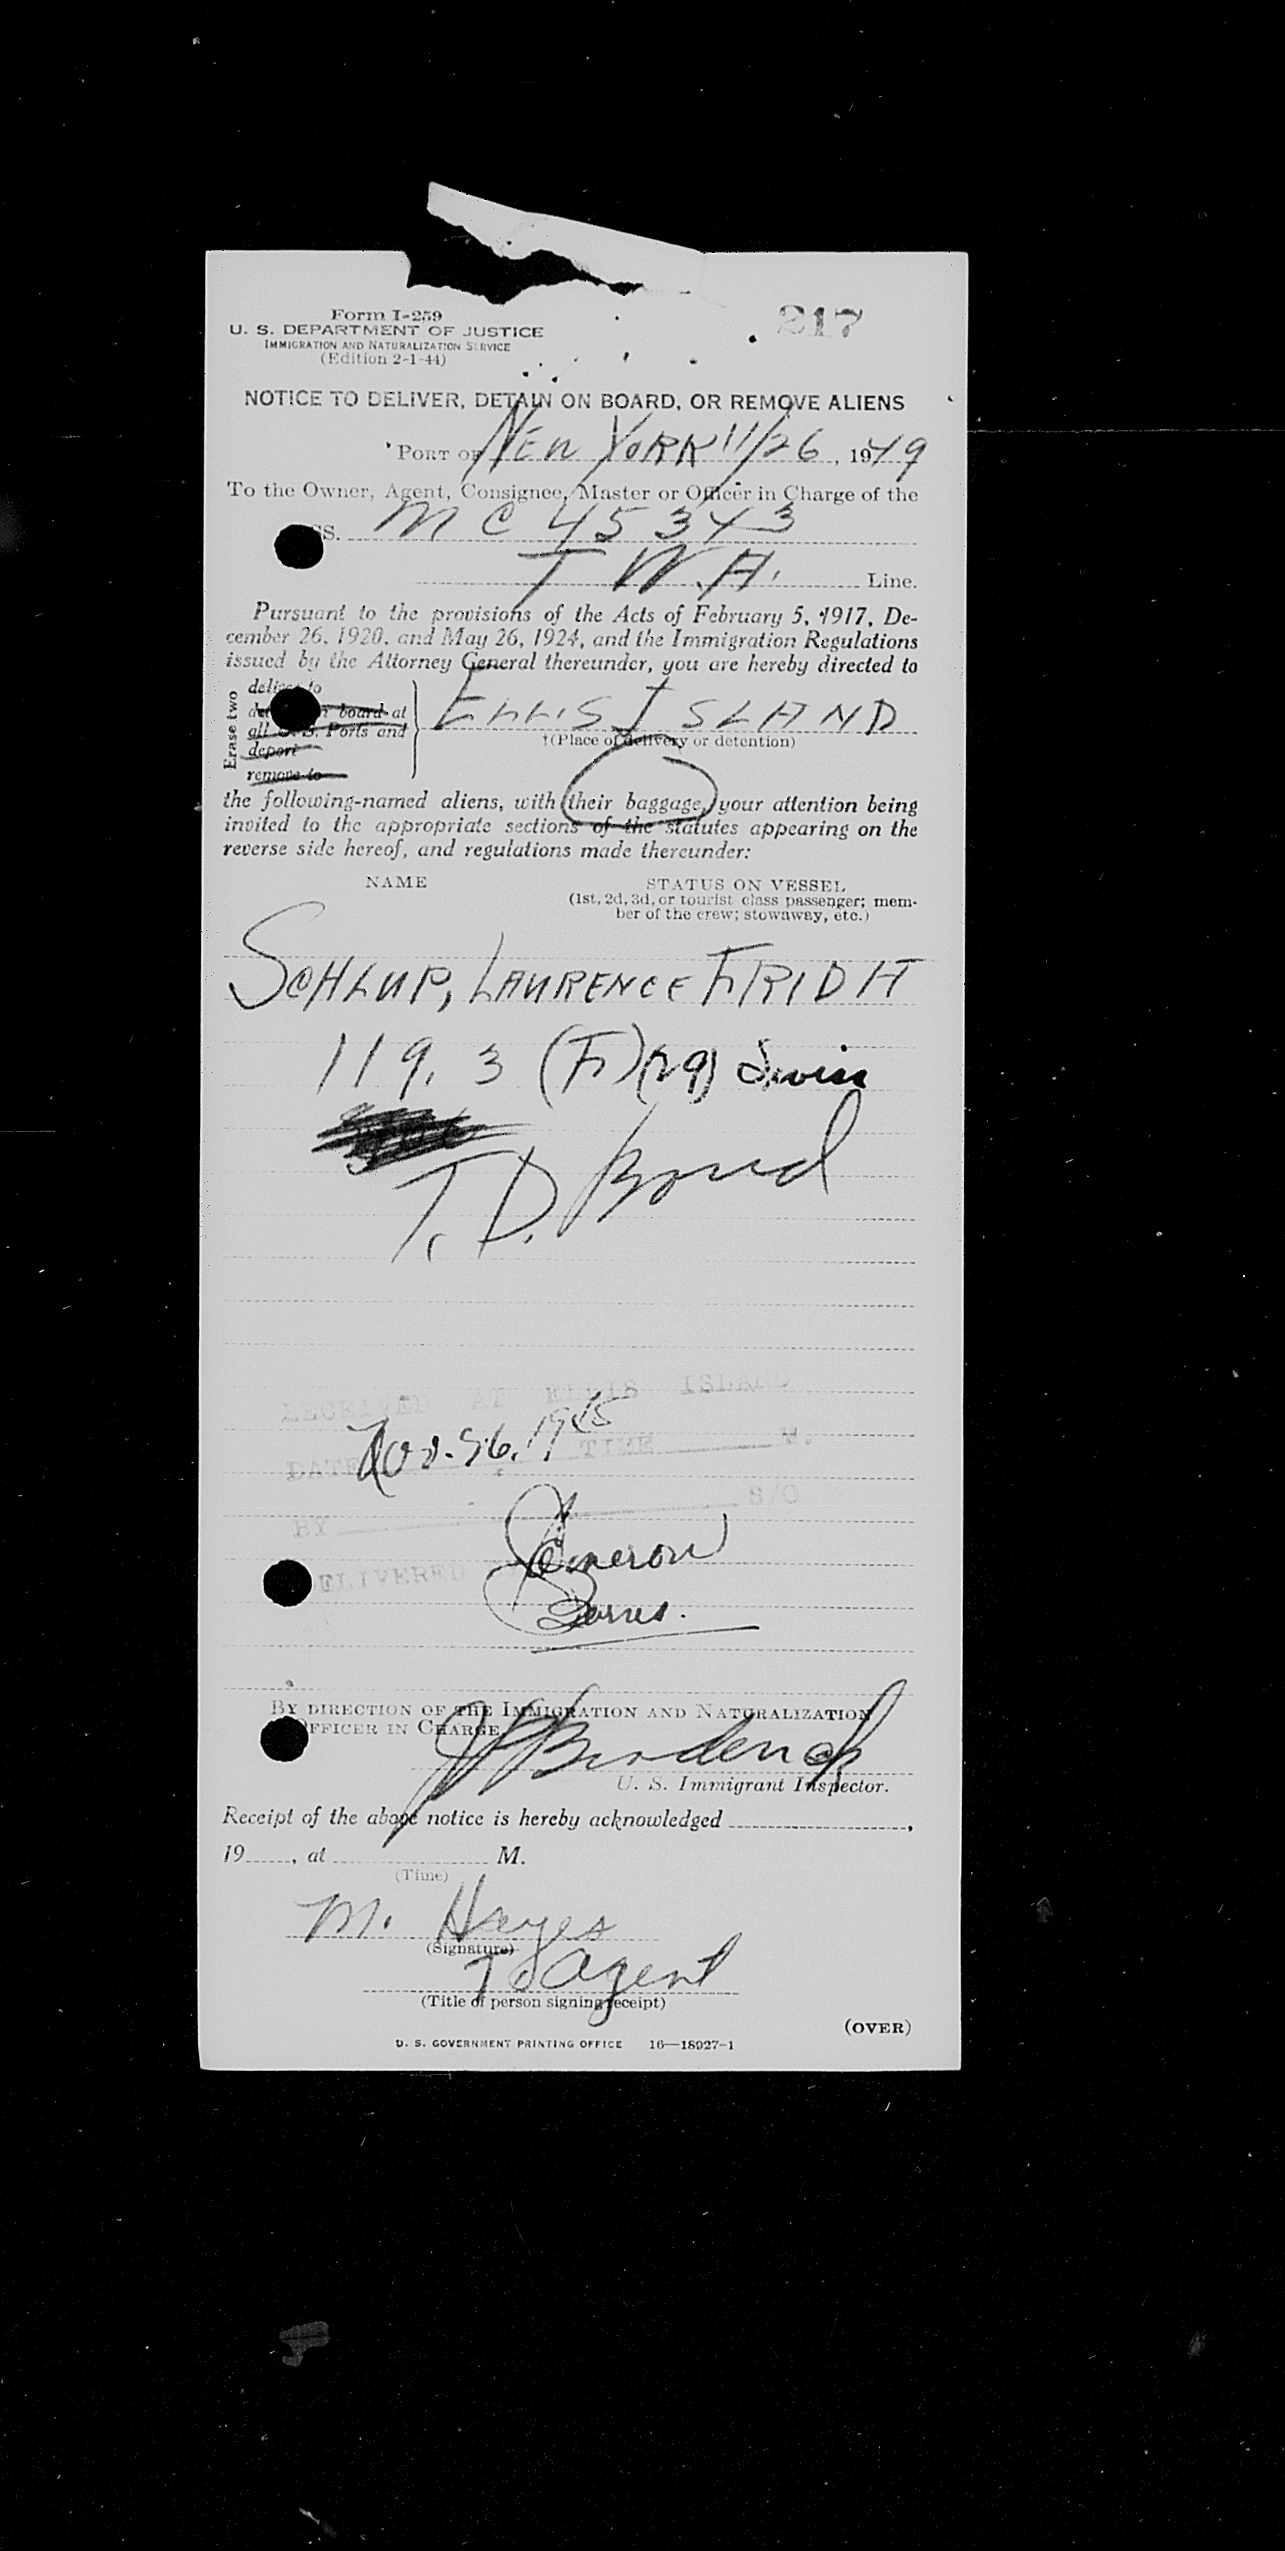 Form I-259
217
U. S. DEPARTMENT OF JUSTICE
IMMIGRATION AND NATURALIZATION SERVICE
(Edition 2-1-44)
NOTICE TO DELIVER, DETAIN ON BOARD, OR REMOVE ALIENS
PORT OF NEW YORK 11/26, 1949
To the Owner, Agent, Consignee, Master or Officer in Charge of the
SS. MC 45343
T W.A. Line.
Pursuant to the provisions of the Acts of February 5, 1917, De-
cember 26, 1920, and May 26, 1924, and the Immigration Regulations
issued by the Attorney General thereunder, you are hereby directed to
Erase two
deliver to
board at
all Ports and
deport
remove to
ELLIS ISLAND
†(Place of delivery or detention)
the following-named aliens, with their baggage, your attention being
invited to the appropriate sections of the statutes appearing on the
reverse side hereof, and regulations made thereunder:
NAME
STATUS ON VESSEL
(1st, 2d, 3d, or tourist class passenger; mem-
ber of the crew; stowaway, etc.)
SCHLUP, LAURENCE FRIDA
119. 3 (F) (29) Swiss
T. D. Bond
RECEIVED AT ELLIS ISLAND
DATE TIME M.
BY S/O
DELIVERED
Cameron
BY DIRECTION OF THE IMMIGRATION AND NATURALIZATION
OFFICER IN CHARGE
U. S. Immigrant Inspector.
Receipt of the above notice is hereby acknowledged ,
19 , at M.
(Time)
M. Hayes
(Signature)
Agent
(Title of person signing receipt)
(OVER)
U. S. GOVERNMENT PRINTING OFFICE 16—18927-1